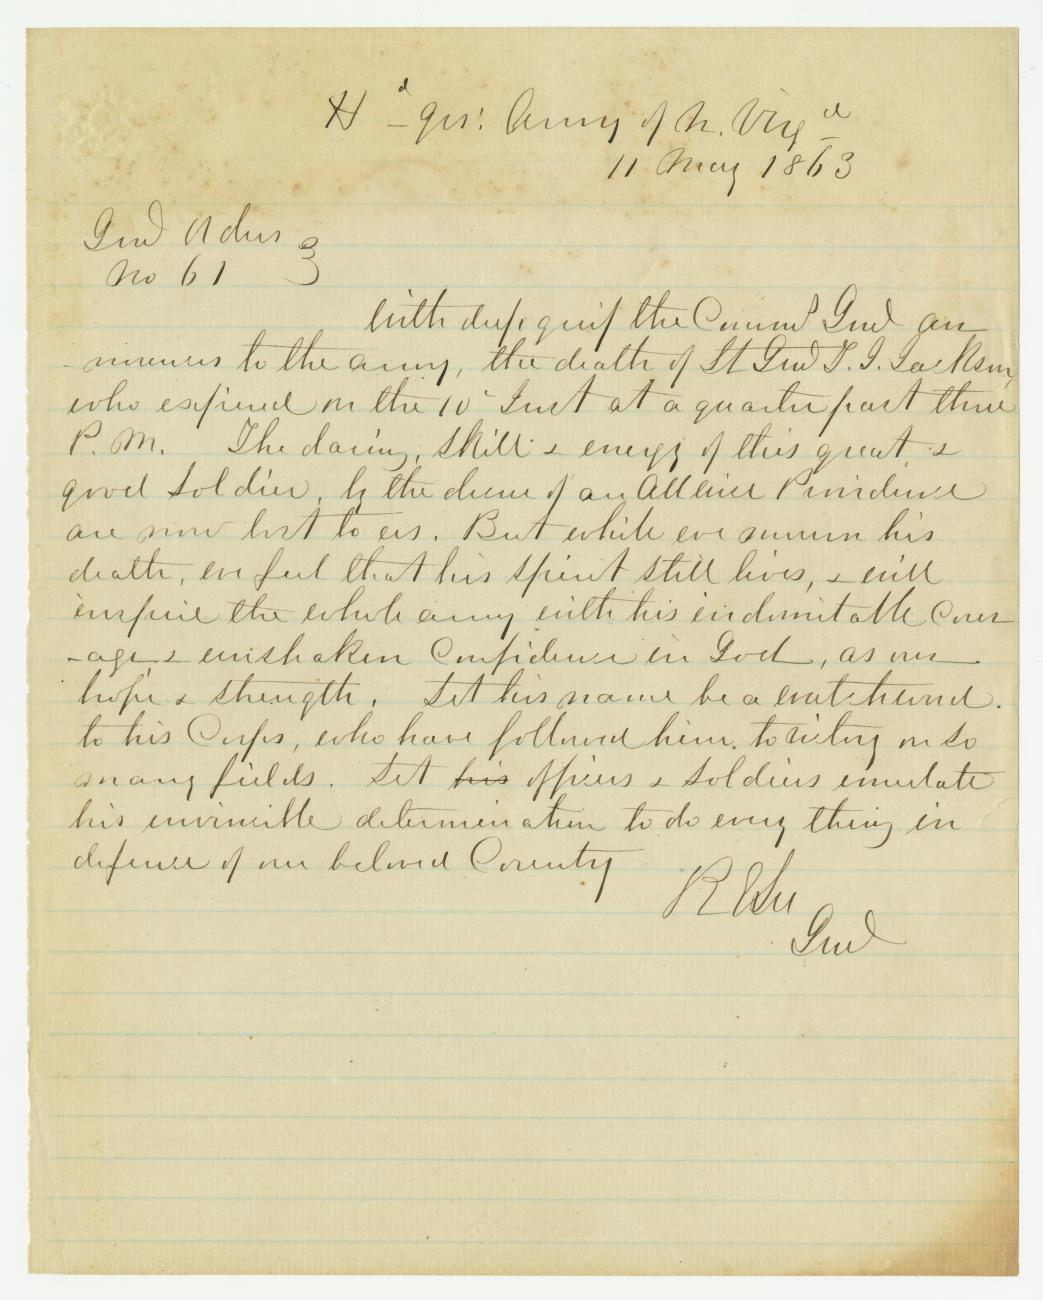 Hd qrs: Army of N. Virga
11 May 1863
Genl Orders
No 61
With deep grief the Commd Genl an
-nounces to the army, the death of Lt Genl T. J. Jackson,
who expired on the 10th Inst at a quarter past three
P. M. The daring, skill & energy of this great &
good soldier, by the decree of an All wise Providence
are now lost to us. But while we mourn his
death, we feel that his spirit still lives, & will
inspire the whole army with his indomitable cour
-age & unshaken confidence in God, as our
hope & strength. Let his name be a watchword
to his Corps, who have followed him to victory on so
many fields. Let his officers & soldiers emulate
his invincible determination to do every thing in
defence of our beloved Country
R E Lee
Genl